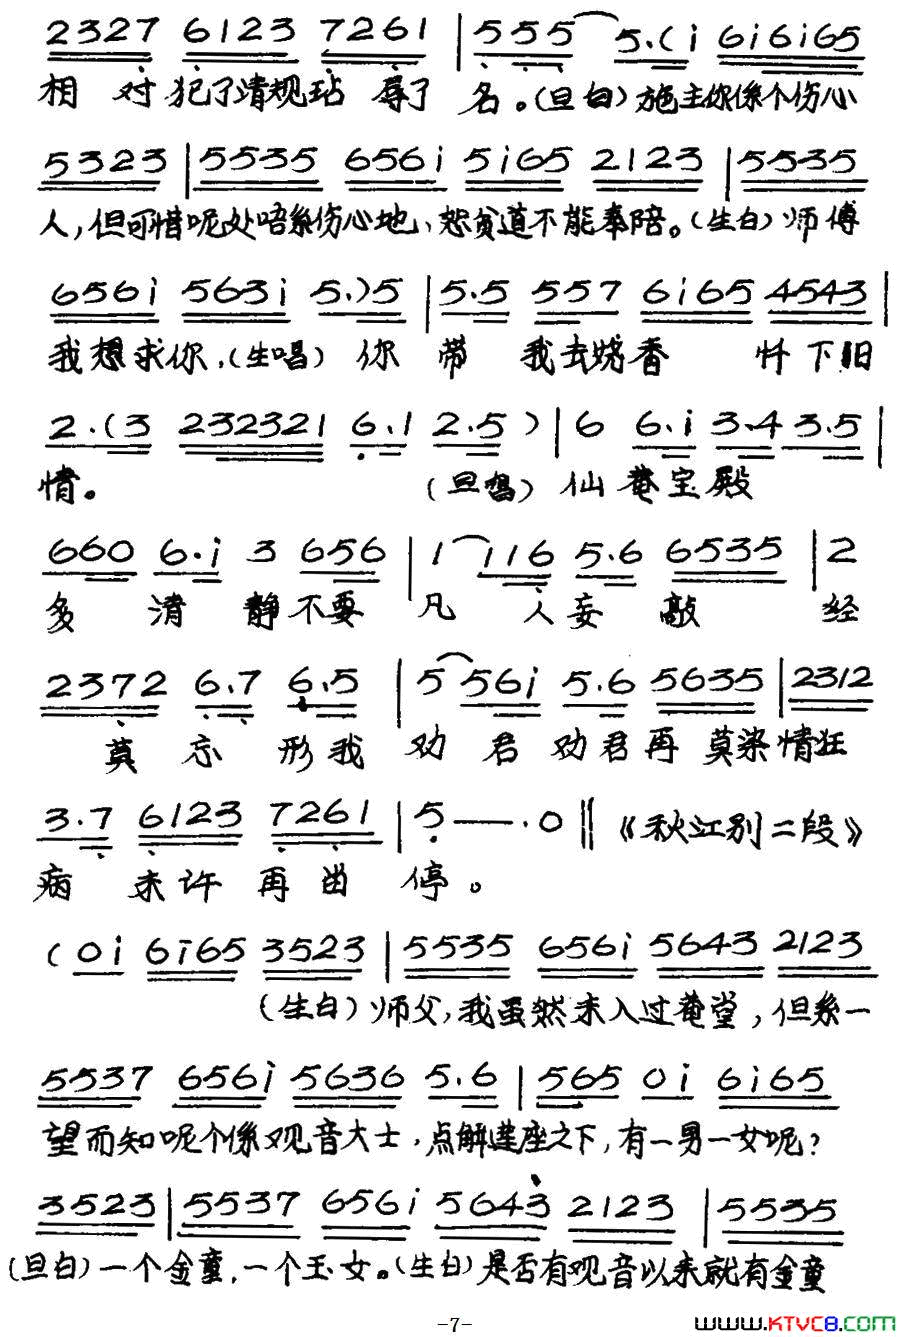 2327 6123 7261 | 555 5.(i 6i6i65
相对犯了清规玷辱了名。(旦白)施主你係个伤心
5323 | 5535 656i 5i65 2123 | 5535
人,但可惜呢处唔系伤心地、恕贫道不能奉陪。(生白)师傅
656i 563i 5.)5 | 5.5 557 6i65 4543 |
我想求你,(生唱)你带我去烧香忏下旧
2.(3 232321 6.1 2.5 ) | 6 6.i 3.4 3.5 |
情。(旦唱)仙菴宝殿
660 6.i 3 656 | 1 116 5.6 6535 | 2
多清静不要凡人妄敲经
2372 6.7 6.5 | 5 56i 5.6 5635 | 2312
莫忘形我劝君劝君再莫染情狂
3.7 6123 7261 | 5 — . 0 ‖ 《秋江别二段》
病未许再留停。
( 0i 6i65 3523 | 5535 656i 5643 2123
(生白)师父,我虽然未入过菴堂,但系一
5537 656i 5636 5.6 | 565 0i 6i65
望而知呢个係观音大士,点解莲座之下,有一男一女呢?
3523 | 5537 656i 5643 2123 | 5535
(旦白)一个金童,一个玉女。(生白)是否有观音以来就有金童
-7-
WWW.KTVC8.COM